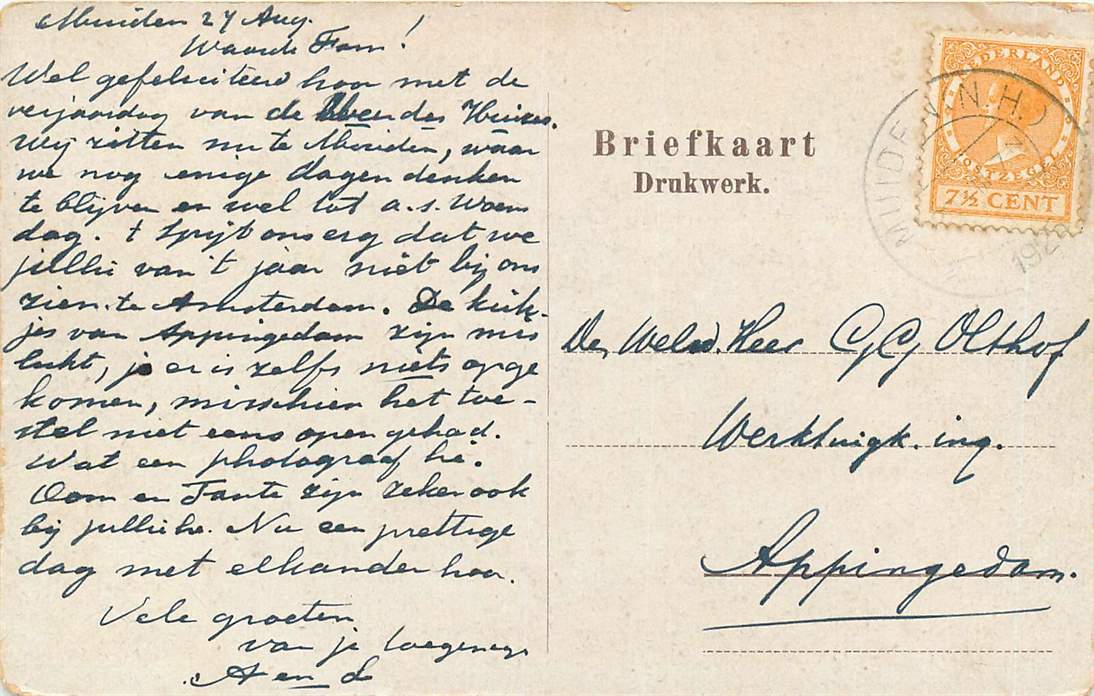 Muiden 27 Aug.
Waarde Fam!
Wel gefeliciteerd hoor met de
verjaardag van de des Huizes.
Wij zitten nu te Muiden, waar
we nog enige dagen denken
te blijven en wel tot a.s. Woens
dag. 't Spijt ons erg dat we
jullie van 't jaar niet bij ons
zien te Amsterdam. De kiek-
jes van Appingedam zijn mis
lukt, je er is zelfs niets opge
komen, misschien het toe-
stel niet eens open gehad.
Wat een photograaf hè.
Oom en Tante zijn zeker ook
bij jullie hè. Nu een prettige
dag met elkander hoor.
Vele groeten
van je toegeneg
A en
Briefkaart
Drukwerk.
NEDERLAND
POSTZEGEL
7½ CENT
MUIDEN (N.H.)
De Weled. Heer G.G. Olthof
Werktuigk. ing.
Appingedam.